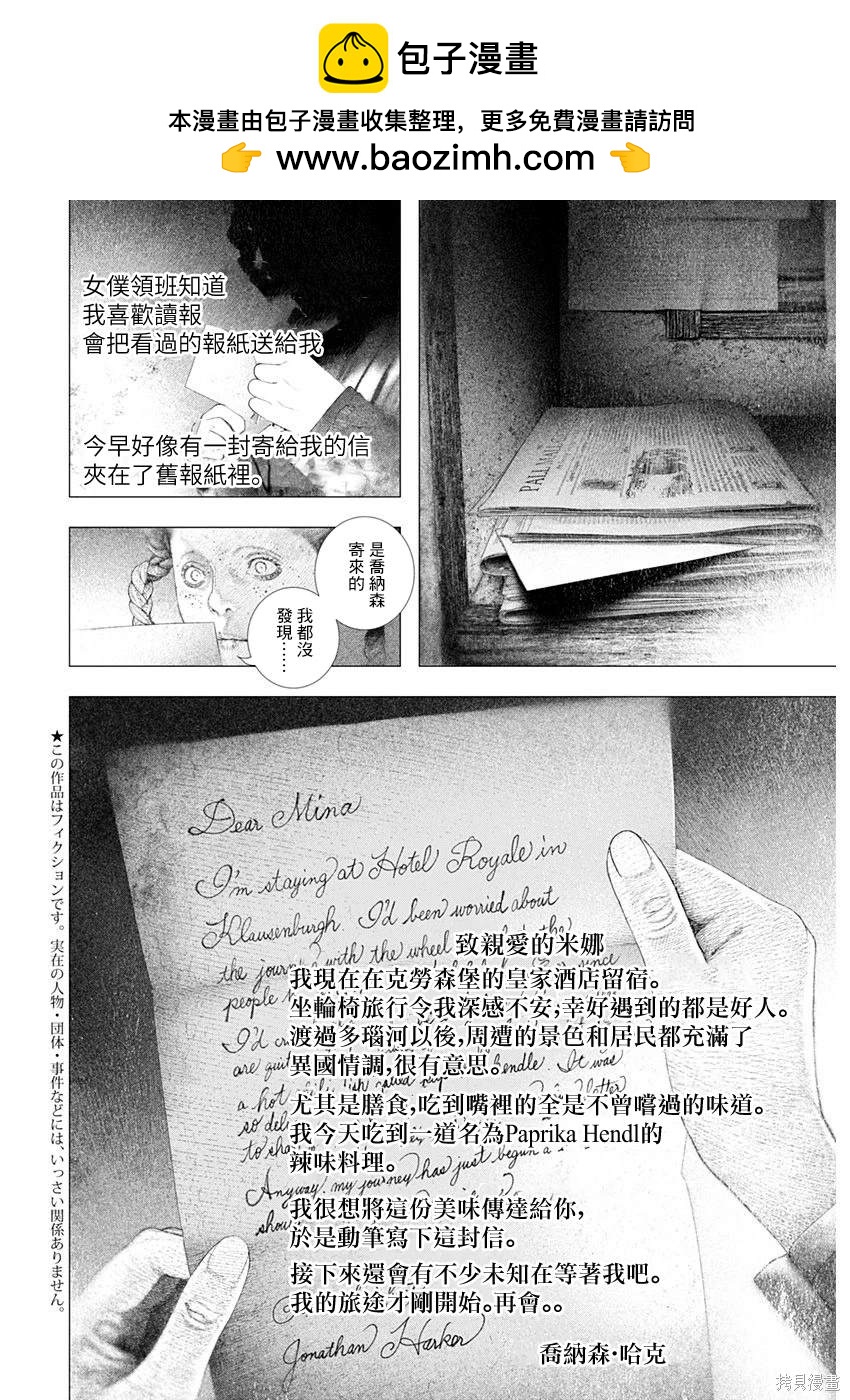 包子漫畫
本漫畫由包子漫畫收集整理，更多免費漫畫請訪問
👉 www.baozimh.com 👈
PALL MALL G
女僕領班知道
我喜歡讀報
會把看過的報紙送給我
今早好像有一封寄給我的信
夾在了舊報紙裡。
是喬納森
寄來的
我都沒
發現……
Dear Mina
I'm staying at Hotel Royale in
Klausenburgh. I'd been worried about
the journey with the wheel the
people since
I'd
are quit hendle. It was
a hot dish called
so del
to sha
Anyway, my journey has just begun
show
Jonathan Harker
致親愛的米娜
我現在在克勞森堡的皇家酒店留宿。
坐輪椅旅行令我深感不安，幸好遇到的都是好人。
渡過多瑙河以後，周遭的景色和居民都充滿了
異國情調，很有意思。
尤其是膳食，吃到嘴裡的全是不曾嚐過的味道。
我今天吃到一道名為Paprika Hendl的
辣味料理。
我很想將這份美味傳達給你，
於是動筆寫下這封信。
接下來還會有不少未知在等著我吧。
我的旅途才剛開始。再會。。
喬納森·哈克
★この作品はフィクションです。実在の人物・団体・事件などには、いっさい関係ありません。
拷貝漫畫